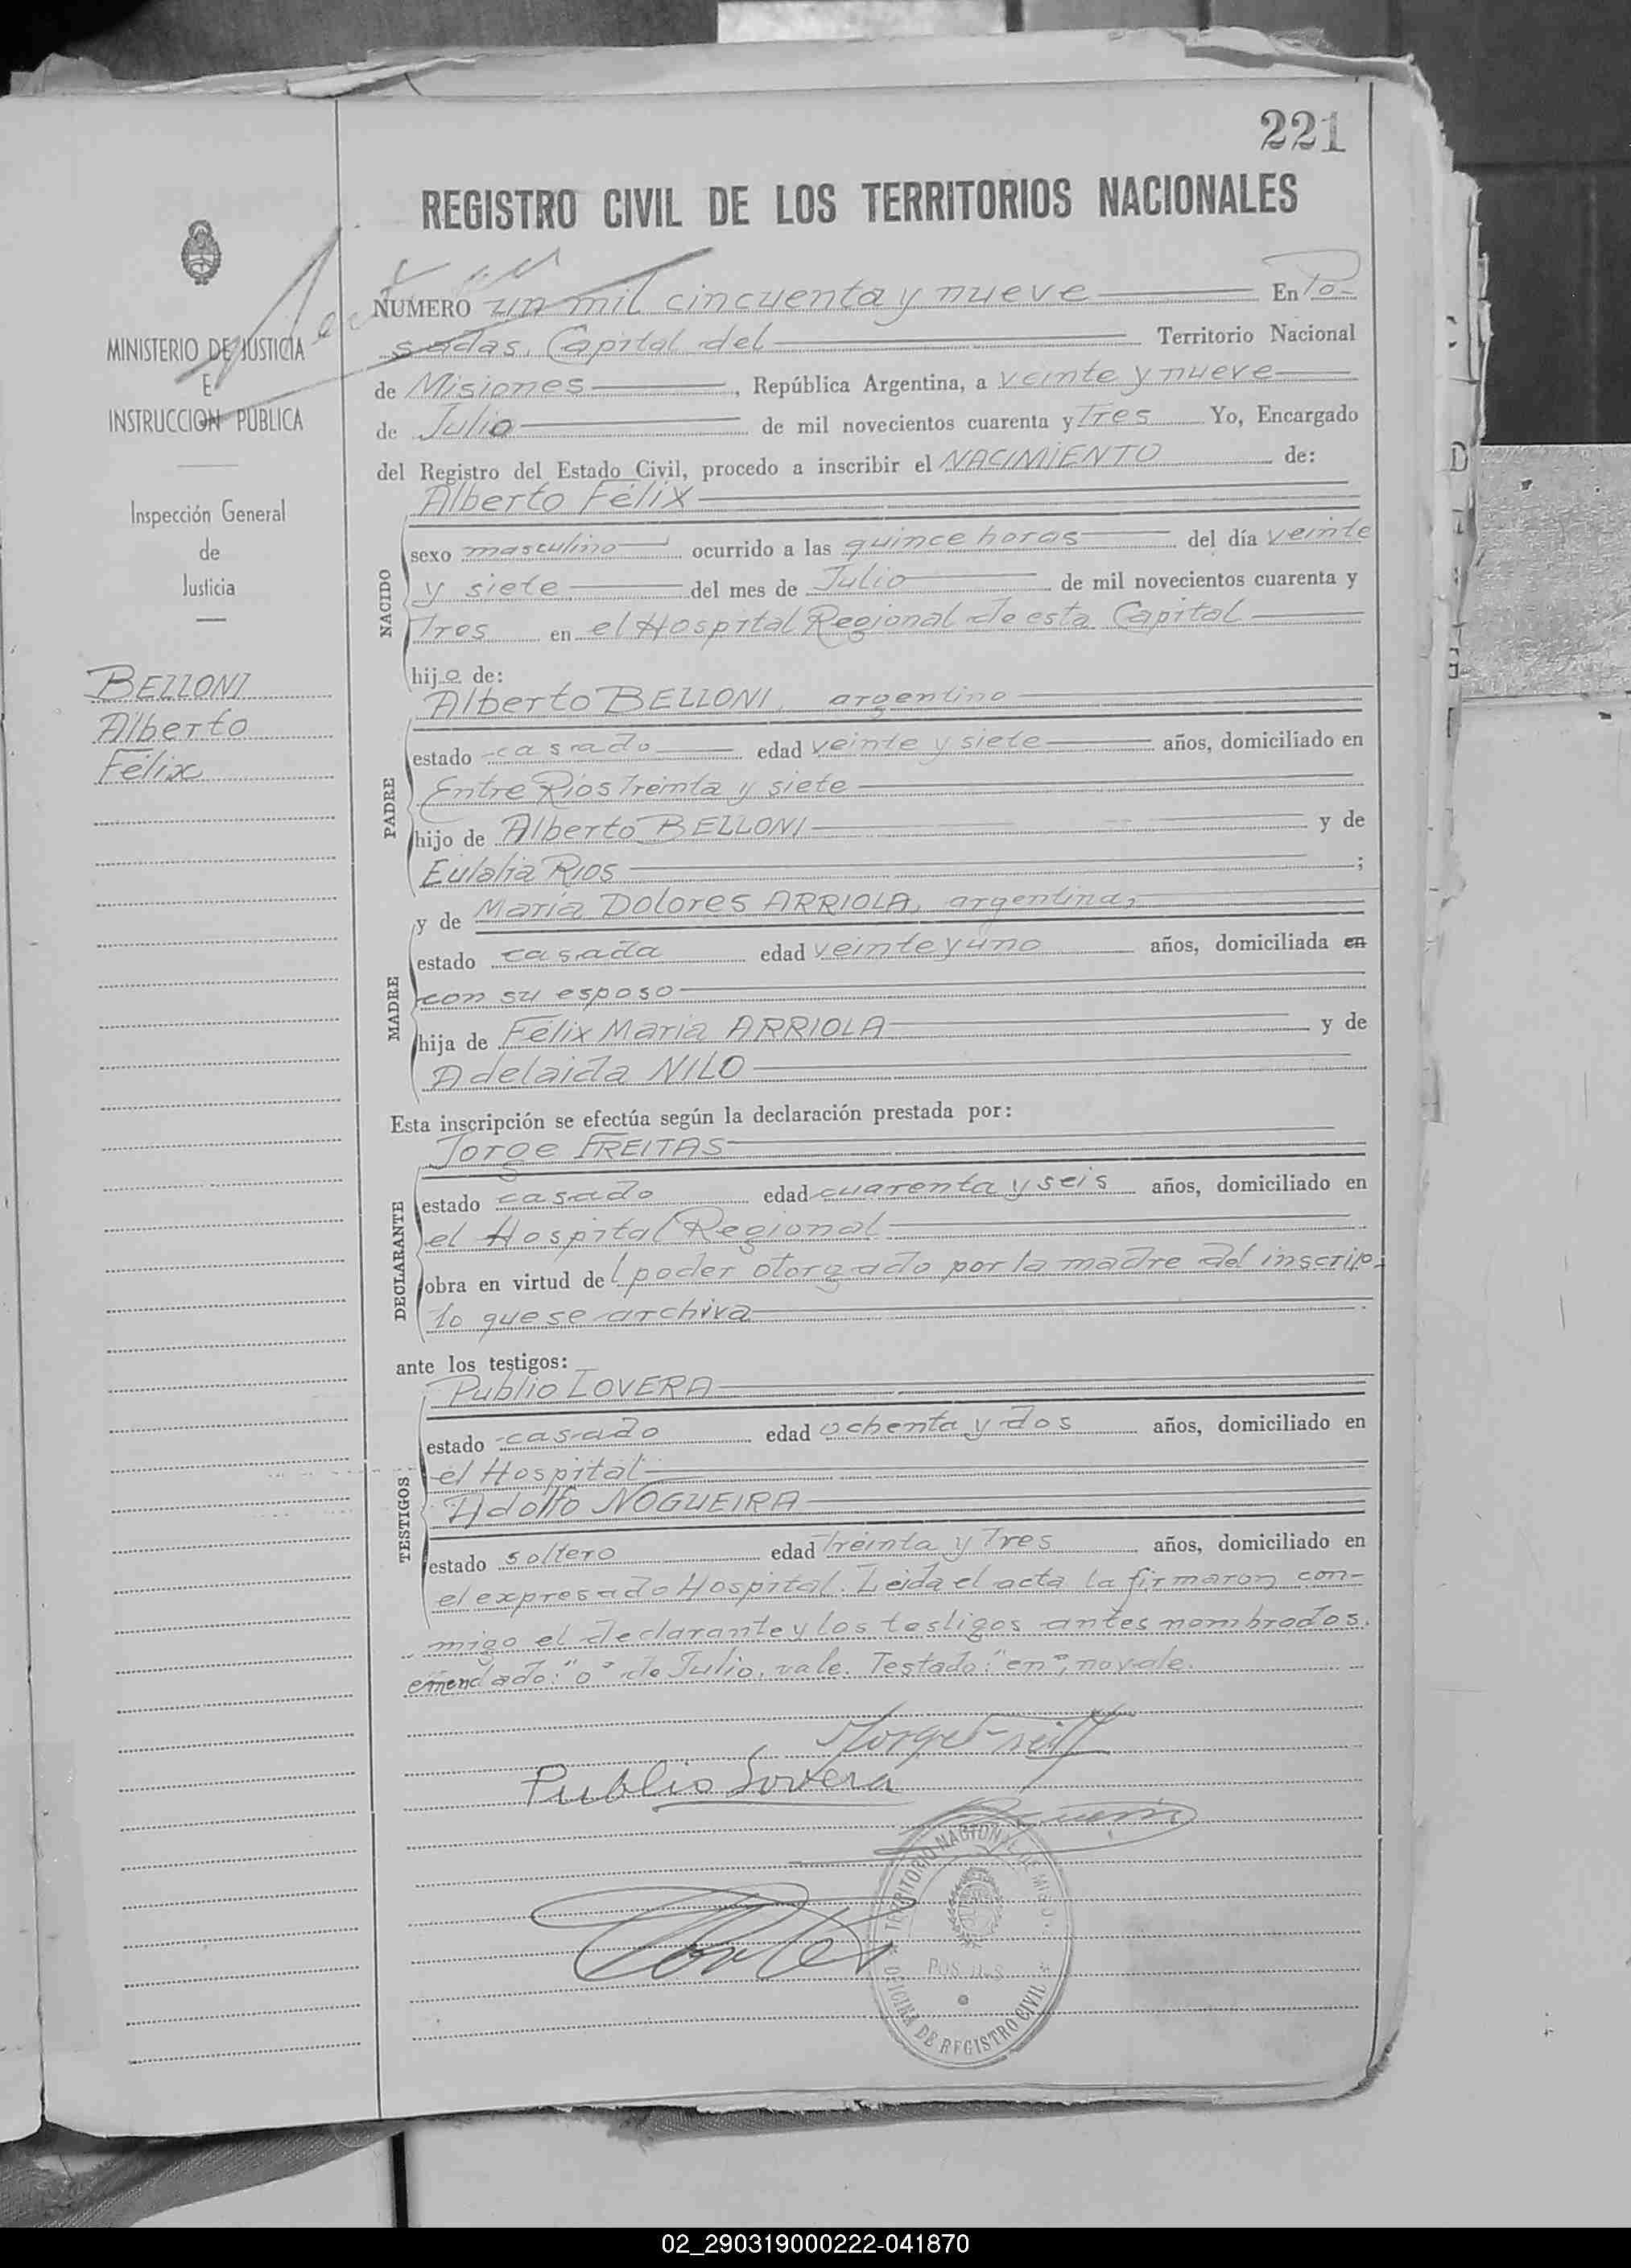 221
REGISTRO CIVIL DE LOS TERRITORIOS NACIONALES
MINISTERIO DE JUSTICIA
E
INSTRUCCION PUBLICA
Inspección General
de
Justicia
BELLONI
Alberto
Félix
NUMERO un mil cincuenta y nueve En Po-
sadas, Capital del Territorio Nacional
de Misiones, República Argentina, a veinte y nueve
de Julio de mil novecientos cuarenta y Tres Yo, Encargado
del Registro del Estado Civil, procedo a inscribir el NACIMIENTO de:
NACIDO
Alberto Félix
sexo masculino ocurrido a las quince horas del día veinte
y siete del mes de Julio de mil novecientos cuarenta y
Tres en el Hospital Regional de esta Capital
hijo de:
PADRE
Alberto BELLONI, argentino
estado casado edad veinte y siete años, domiciliado en
Entre Rios Treinta y siete
hijo de Alberto BELLONI y de
Eulalia RIOS ;
MADRE
y de María Dolores ARRIOLA, argentina,
estado casada edad veinte y uno años, domiciliada en
con su esposo
hija de Félix Maria ARRIOLA y de
Adelaida NILO
Esta inscripción se efectúa según la declaración prestada por:
DECLARANTE
Jorge FREITAS
estado casado edad cuarenta y seis años, domiciliado en
el Hospital Regional
obra en virtud del poder otorgado por la madre del inscrip-
to que se archiva
ante los testigos:
TESTIGOS
Publio LOVERA
estado casado edad ochenta y dos años, domiciliado en
el Hospital
Adolfo NOGUEIRA
estado soltero edad Treinta y Tres años, domiciliado en
el expresado Hospital. Leida el acta la firmaron con-
migo el declarante y los testigos antes nombrados.
emendado: "o" de Julio, vale. Testado: "en", no vale.
Publio Lovera
TERRITORIO NACIONAL DE MISIO
POSADAS
OFICINA DE REGISTRO CIVIL
02_290319000222-041870